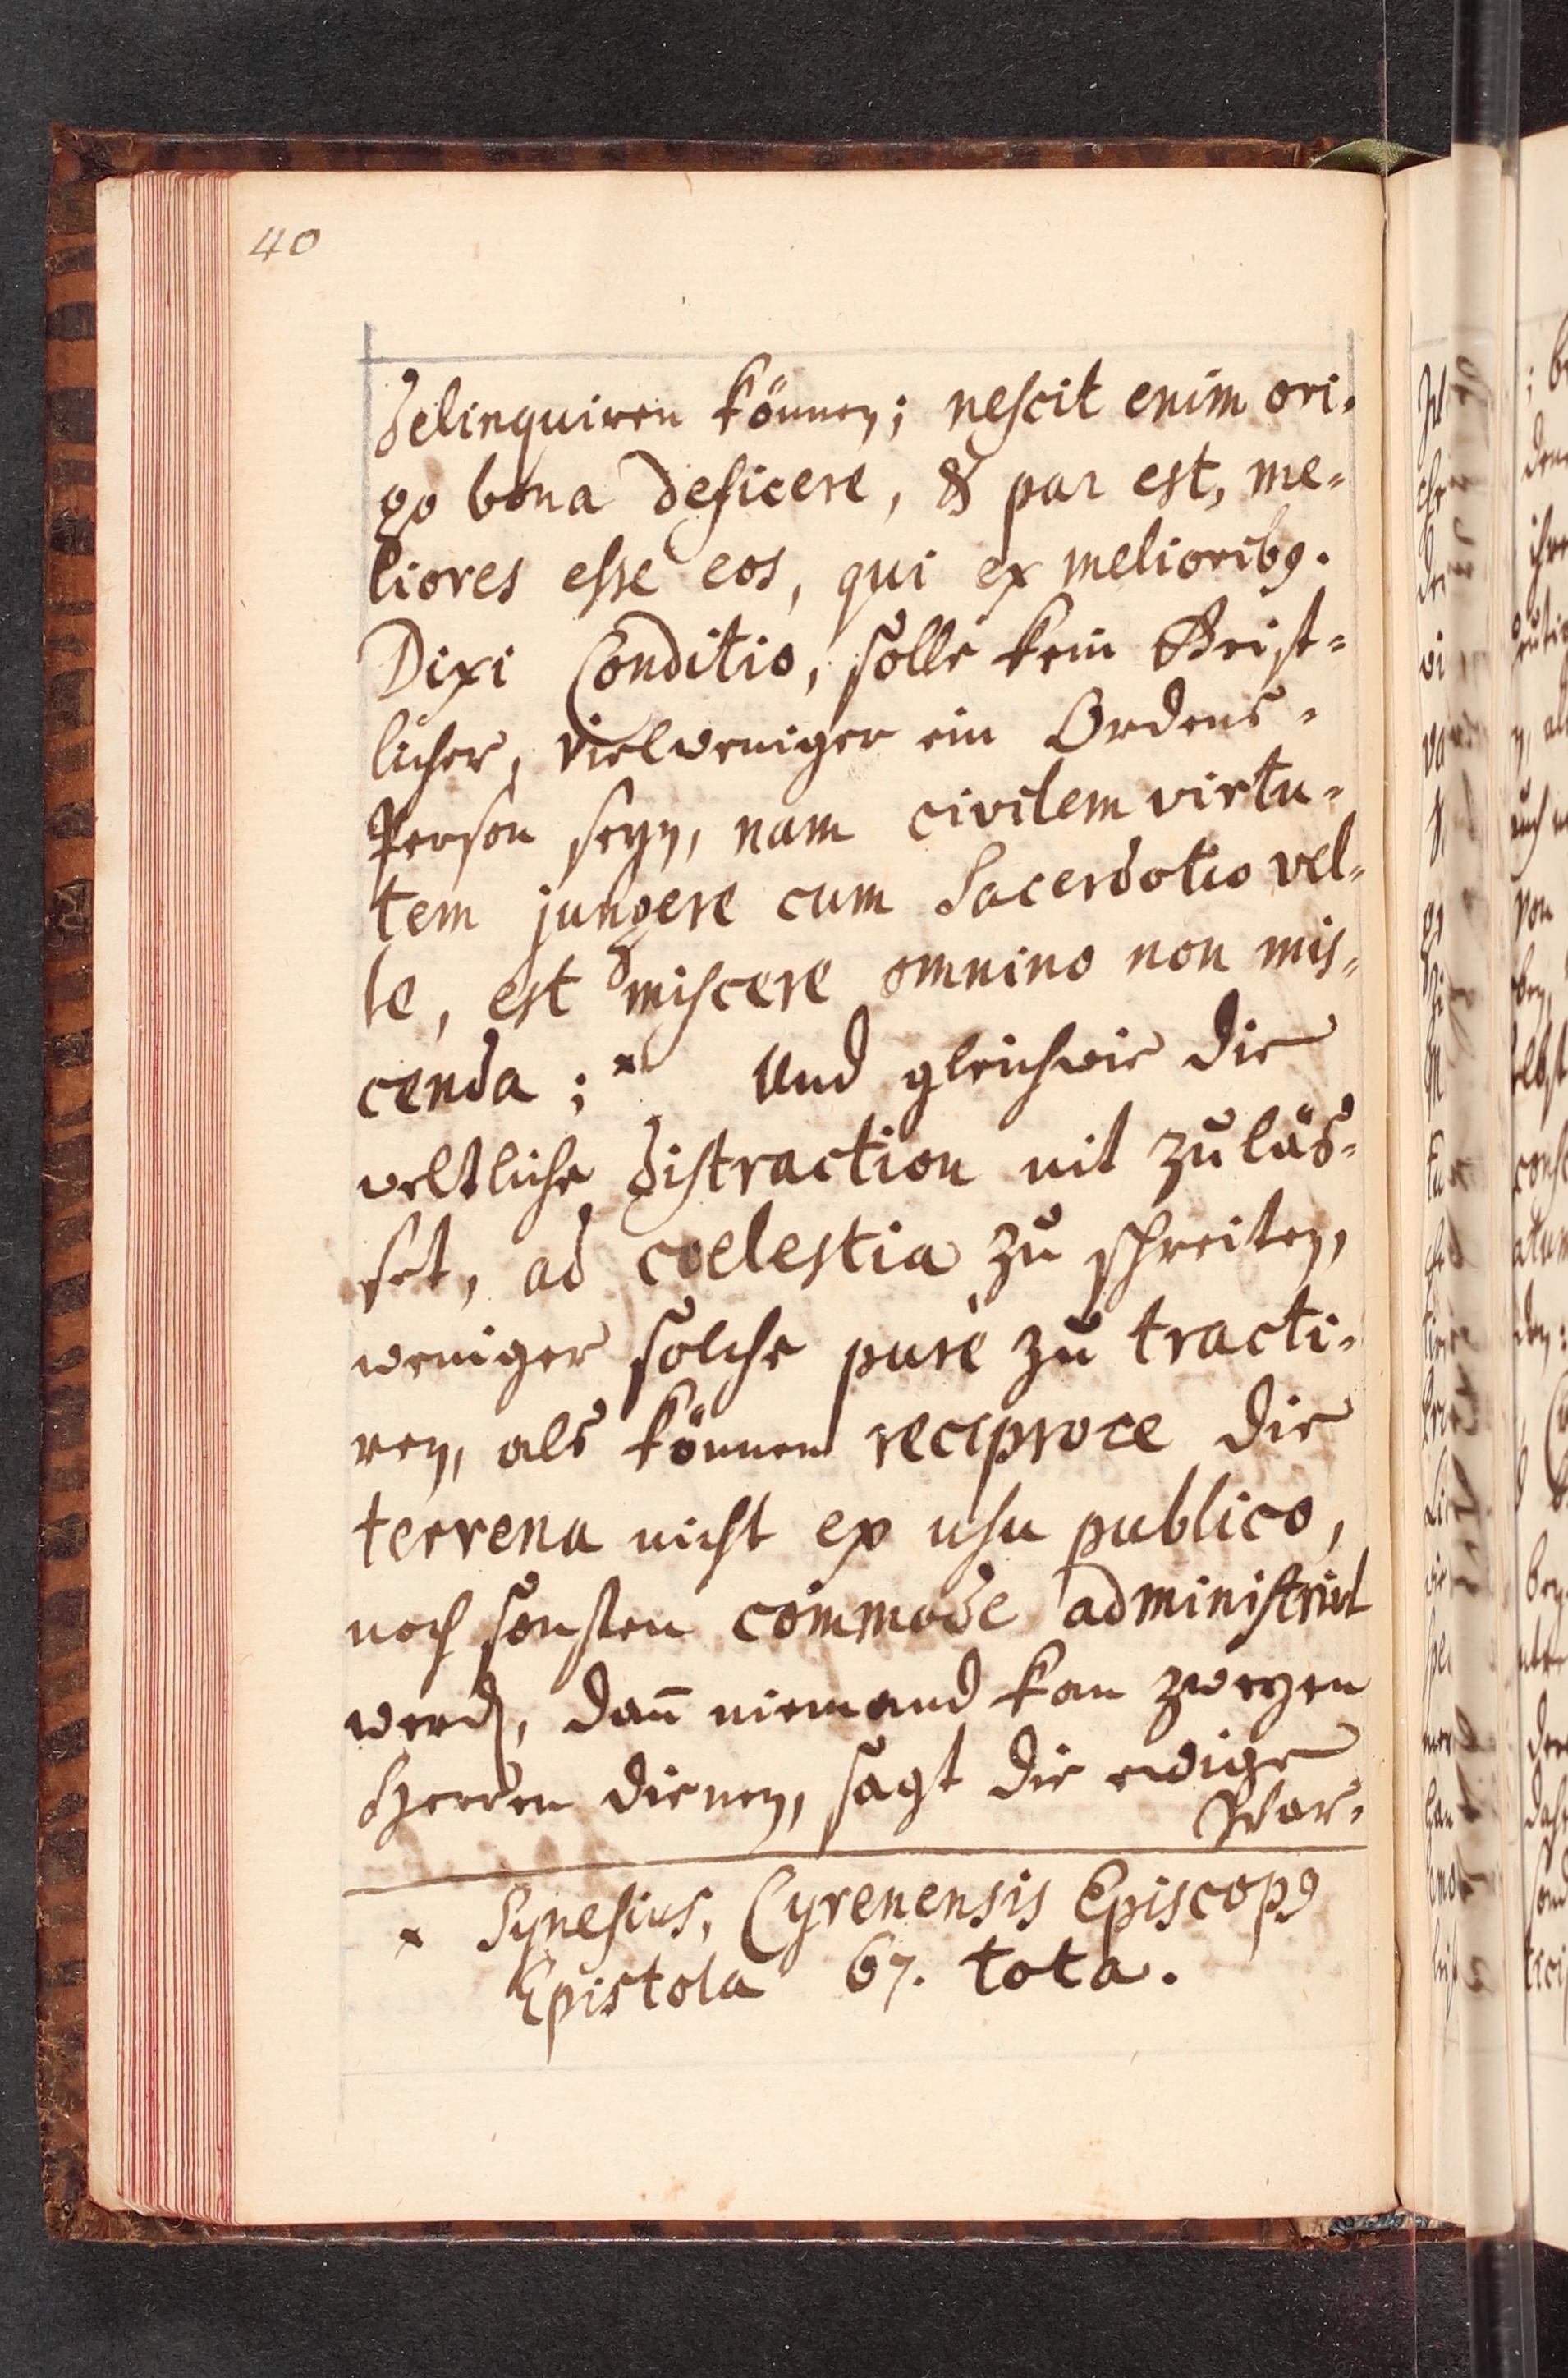 40
delinquiren können; nescit enim ori-
go bona deficere, & par est, me-
liores esse eos, qui ex melioribꝰ.
Dixi Conditio, solle kein Geist-
licher, vielweniger ein Ordens-
Person seyn, nam civilem virtu-
tem jungere cum Sacerdotio vel-
le, est miscere omnino non mis-
cenda; * Und gleichwie die
weltliche distraction nit zuläs-
set, ad coelestia zu schreiten,
weniger solche purè zu tracti-
ren, als können reciproce die
terrena nicht ex usu publico,
noch sonsten commode administrirt
werdn, dan̄ niemand kan zweyen
Herren dienen, sagt die ewige
War-
* Synesius, Cyrenensis Episcopꝰ
Epistola 67. tota.